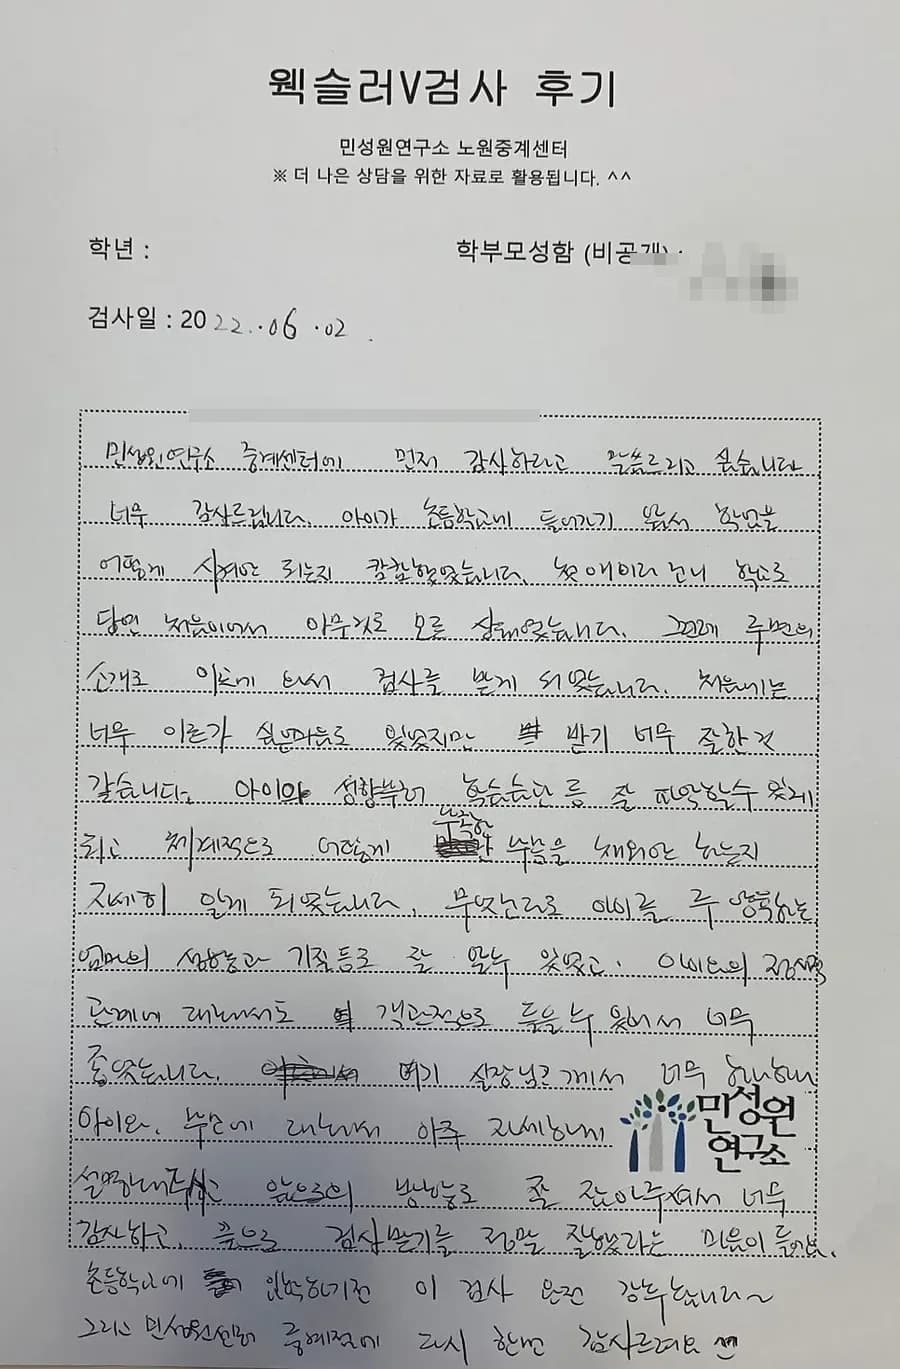 웩슬러V검사 후기
민성원연구소 노원중계센터
※ 더 나은 상담을 위한 자료로 활용됩니다. ^^
학년 :
학부모성함 (비공개) :
검사일 : 2022.06.02.
민성원연구소 중계센터에 먼저 감사하라고 말씀드리고 싶습니다
너무 감사드립니다. 아이가 초등학교에 들어가기 앞서 학업을
어떻게 시켜야 되는지 캄캄했었습니다. 첫애이다 보니 학교로
당연 처음이어서 아무것도 모를 상태였습니다. 그런데 주변의
소개로 이곳에 와서 검사를 받게 되었습니다. 처음에는
너무 이른가 싶은마음도 있었지만 받기 너무 잘한것
같습니다. 아이의 성향부터 학습습관 등 잘 파악할수 있게
되고 체계적으로 어떻게 부족한 부분을 채워야 하는지
자세히 알게 되었습니다. 무엇보다도 아이를 주 양육하는
엄마의 성향과 기질등도 잘 알수 있었고. 아이와의 정서적
관계에 대해서도 객관적으로 들을수 있어서 너무
좋았습니다. 여기 실장님께서 너무 하나하나
아이와, 부모에 대해서 아주 자세하게
민성원
연구소
설명해주시고 앞으로의 방향도 쫙 잡아주셔서 너무
감사하고, 검사받기를 정말 잘했다라는 마음이 들어요.
초등학교에 입학하기전 이 검사 완전 강추합니다~
그리고 민성원 중계점에 다시 한번 감사드려요